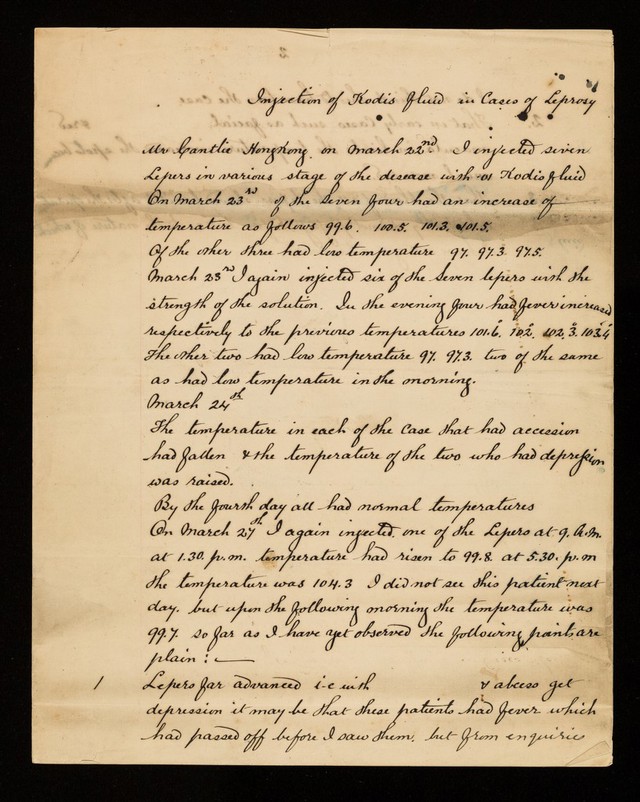 Injection of Kodis fluid in Cases of Leprosy
Mr Cantlie Hongkong on March 22nd. I injected seven
Lepers in various stage of the desease with .01 Kodis fluid
On March 23rd of the seven four had an increase of
temperature as follows 99.6. 100.5. 101.3. 101.5.
Of the other three had low temperature 97. 97.3. 97.5.
March 23rd I again injected six of the seven lepers with the
strength of the solution. In the evening four had fever increased
respectively to the previous temperatures 101.6° 102° 102.3° 103.4°
The other two had low temperature 97. 97.3. two of the same
as had low temperature in the morning.
March 24th
The temperature in each of the case that had accession
had fallen & the temperature of the two who had depression
was raised.
By the fourth day all had normal temperatures
On March 27th I again injected one of the Lepers at 9. A.M.
at 1.30. p.m. temperature had risen to 99.8. at 5.30. p.m
the temperature was 104.3 I did not see this patient next
day. but upon the following morning the temperature was
99.7. so far as I have yet observed the following points are
plain: —
1 Lepers far advanced i-e with & abcess get
depression it may be that these patients had fever which
had passed off before I saw them. but from enquiries